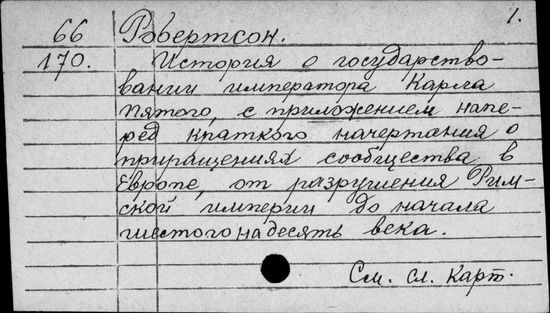 1.
66 Робертсон.
170. История о государство-
вании императора Карла
Пятого, с приложением напе-
ред краткого начертания о
приращениях сообщества в
Европе, от разрушения Рим-
ской империи до начала
шестогонадесять века.
См. сл. карт.